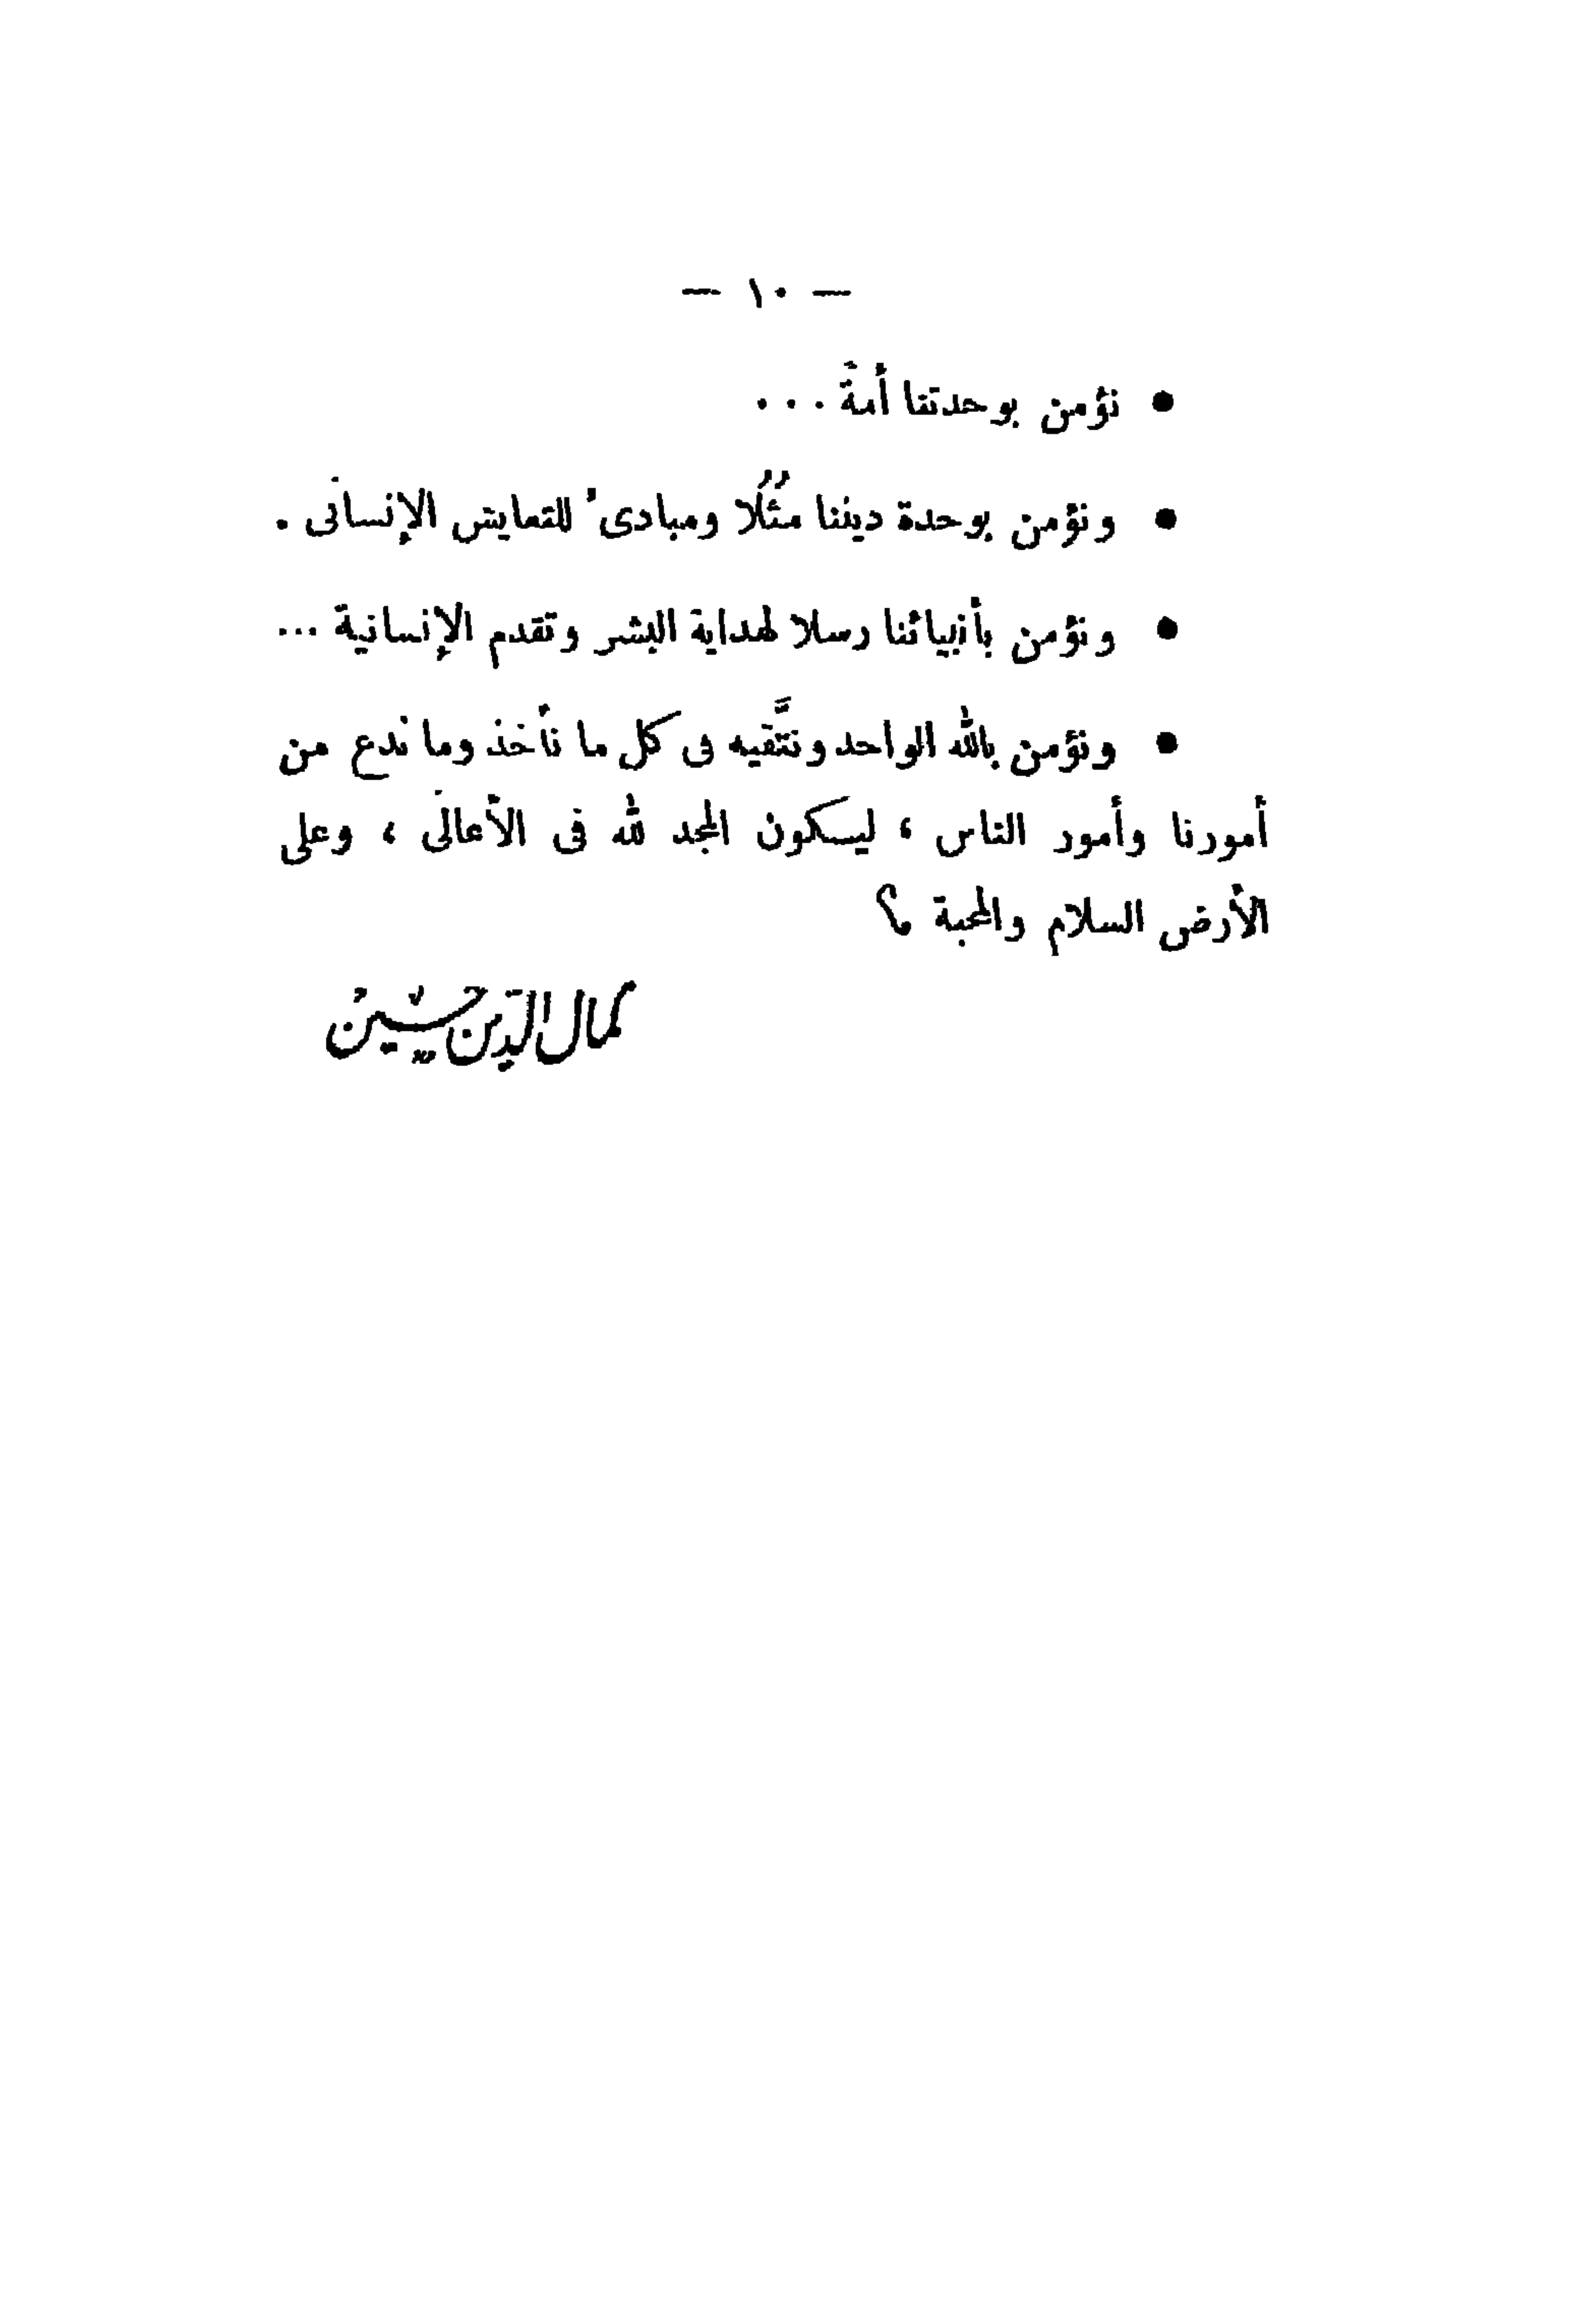 — ١٠ —
● نؤمن بوحدتنا أمةً . . .
● ونؤمن بوحدة ديننا مُثُلًا ومبادئ للتعايش الإنسانى .
● ونؤمن بأنبيائنا رسلا لهداية البشر وتقدم الإنسانية ...
● ونؤمن بالله الواحد ونتَّقيه فى كل ما نأخذ وما ندع من
أمورنا وأمور الناس ، ليكون المجد لله فى الأعالى ، وعلى
الأرض السلام والمحبة ؟
كمال الدين حسين